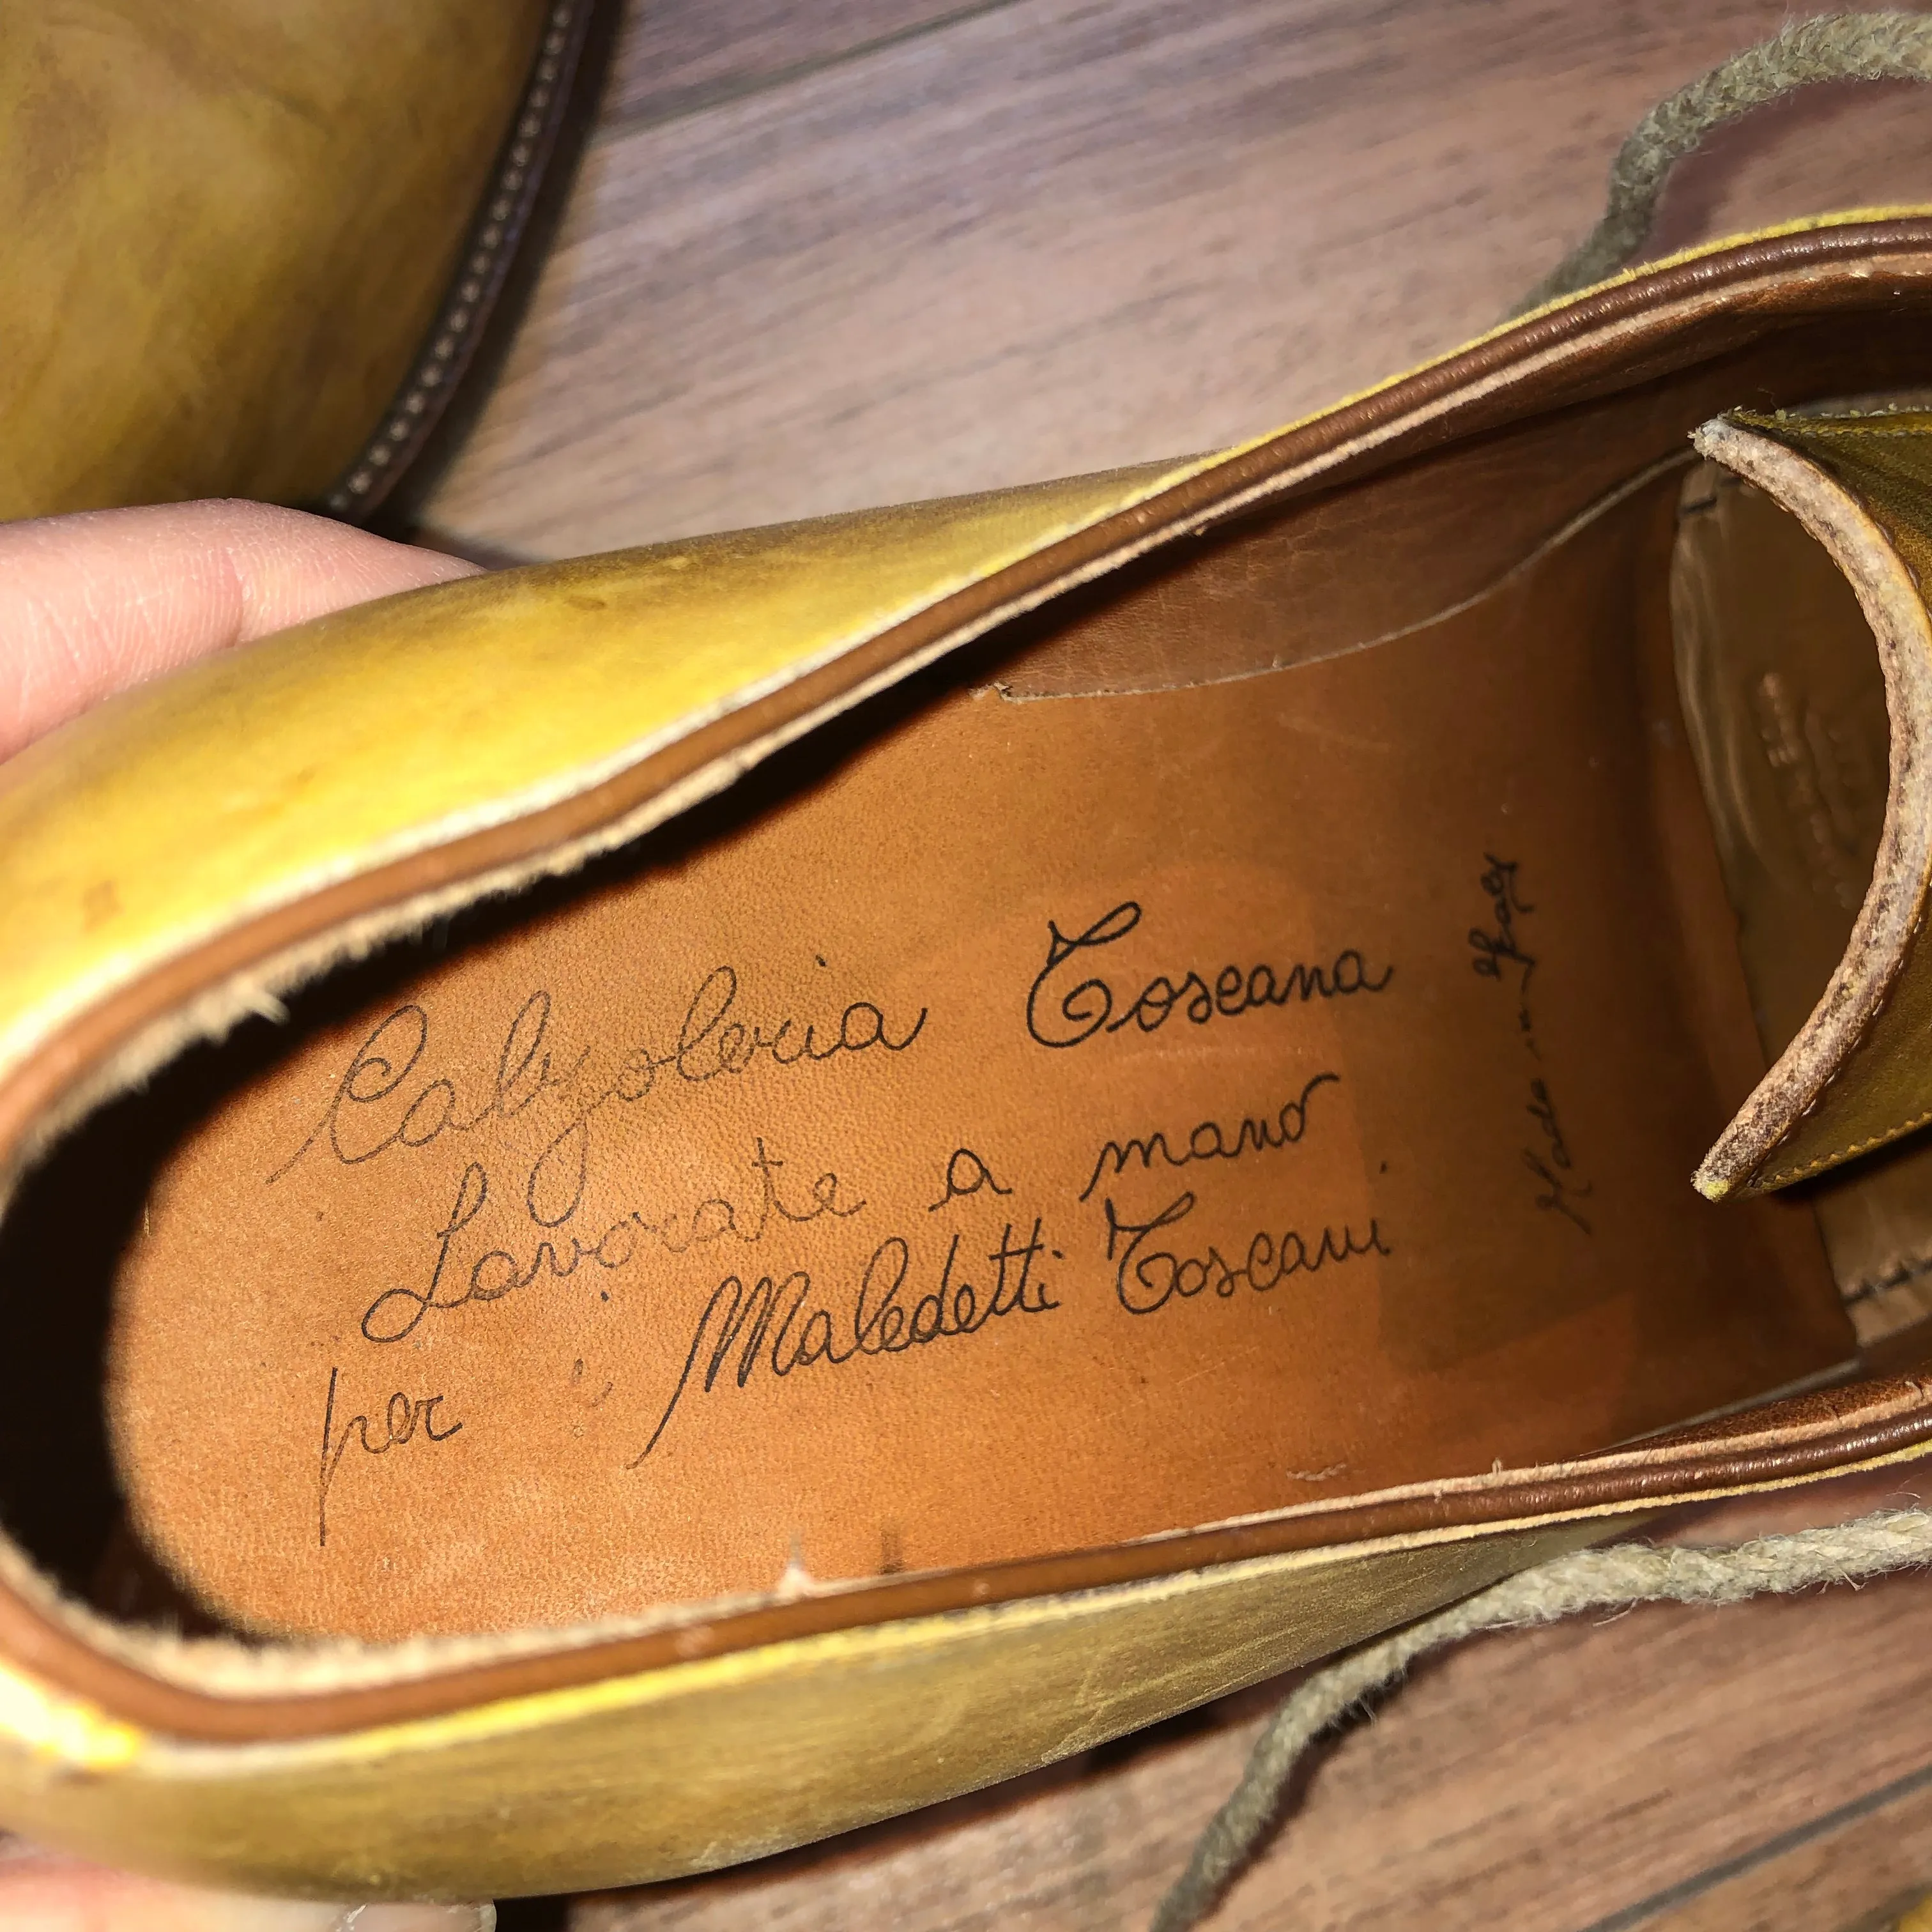 Calzoleria Toscana
Lavorate a mano
per i Maledetti Toscani
Made in Italy